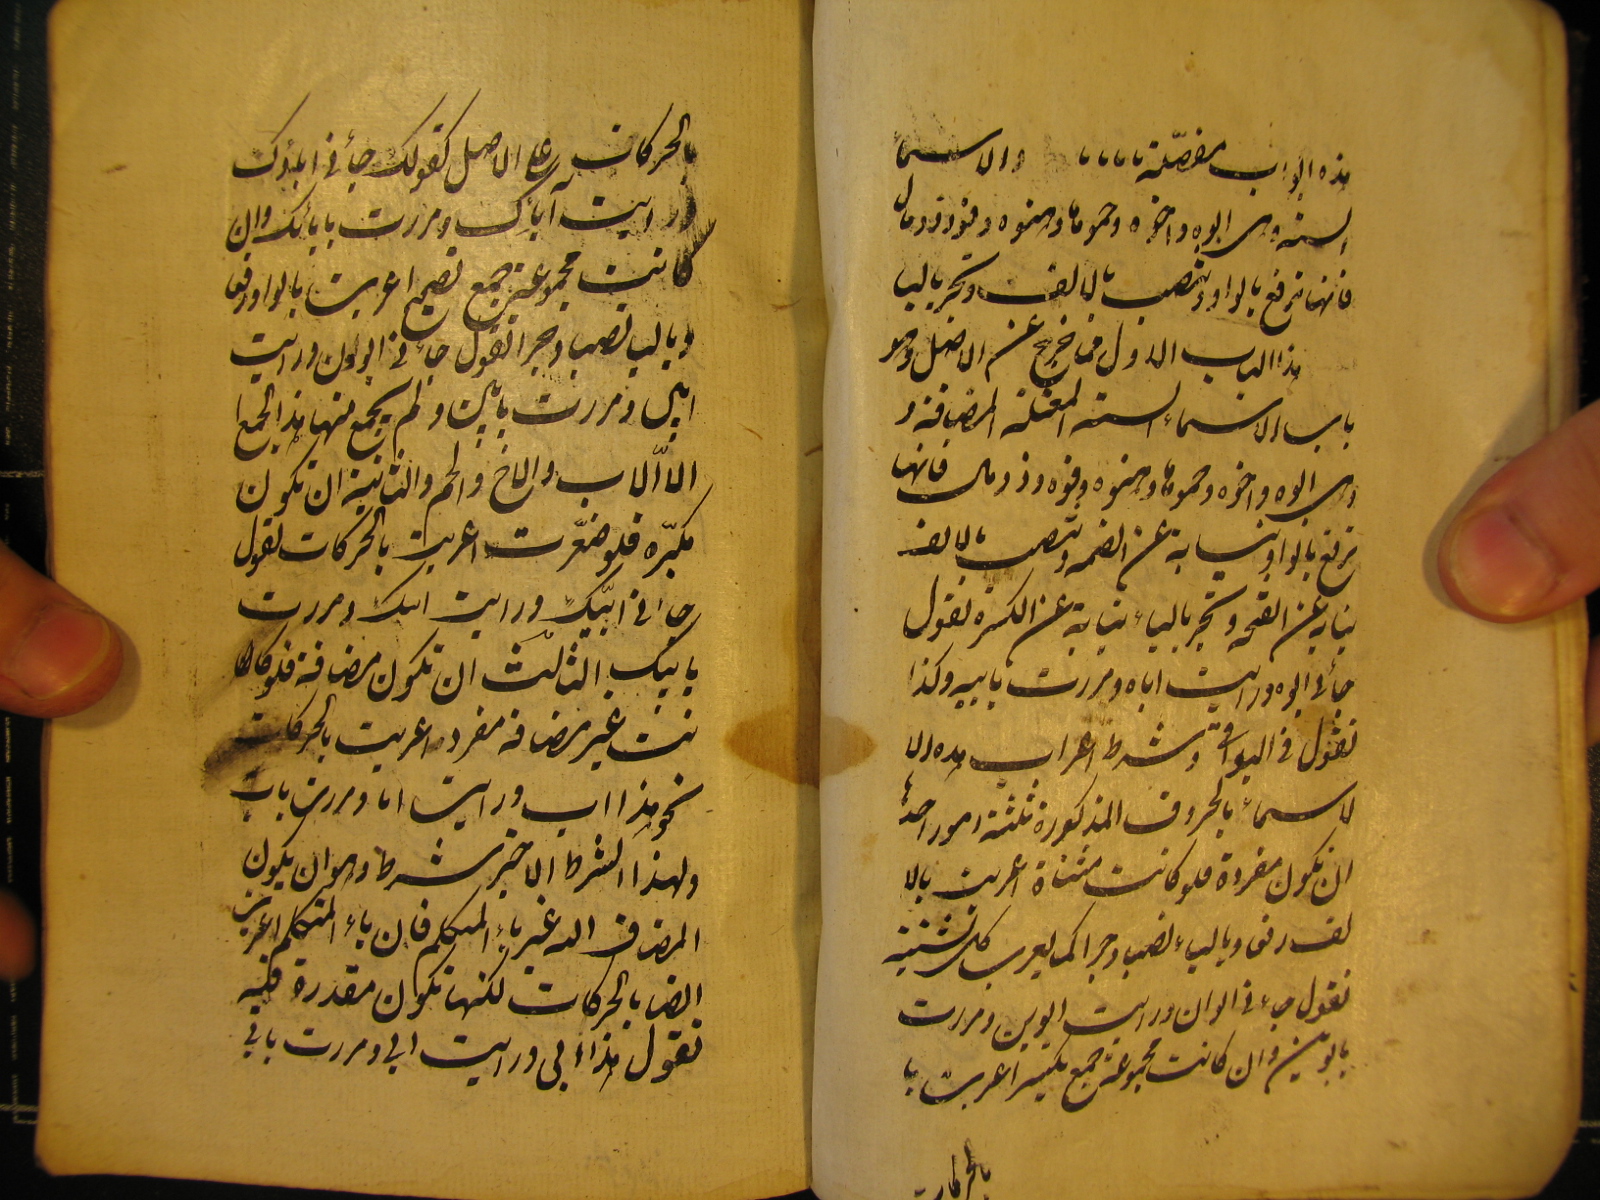 هذه ابواب مفصّلة والاسما
الستة وهى ابوه واخوه وحموها وهنوه وفوه وذو مال
فانها ترفع بالواو وتنصب بالالف وتجر باليا
هذا الباب الاول مما خرج عن الاصل وهو
باب الاسماء الستة المعتلة المضافة و
هى ابوه واخوه وحموها وهنوه وفوه وذو مال فانها
ترفع بالواو نيابة عن الضمه وتنصب بالالف
نيابة عن الفتحه وتجر بالياء نيابة عن الكسرة تقول
جائنى ابوه ورايت اباه ومررت بابيه وكذا
تقول فى البواقى وشرط اعراب هذه الا
لاسماء بالحروف المذكورة ثلثة امور احدها
ان تكون مفردة فلو كانت مثناة اعربت بالا
لف رفعا وبالياء نصبا وجرا كما يعرب كل تثنية
تقول جاءنى ابوان ورايت ابوين ومررت
بابوين وان كانت مجموعة جمع تكسير اعربت با
بالحركات
بالحركات على الاصل كقولك جائنى اباؤك
ورايت آباءك ومررت بابائك وان
كانت مجموعة جمع تصحيح اعربت بالواو رفعا
وباليا نصبا وجرا تقول جاءنى ابون ورايت
ابين ومررت بابين ولم يجمع منها هذا الجمع ا
الا الاب والاخ والحم والثانية ان تكون
مكبّره فلو صغّرت اعربت بالحركات تقول
جائنى ابيّك ورايت ابيك ومررت
بابيك الثالث ان تكون مضافة فلو كا
نت غير مضافه مفرده اعربت بالحركات
نحو هذا اب ورايت ابا ومررت باب
ولهذا الشرط الاخير شرط وهو ان يكون
المضاف اليه غير ياء المتكلم فان ياء المتكلم اعربت
ايضا بالحركات لكنها تكون مقدرة فيه
تقول هذا ابى ورايت ابى ومررت بابى